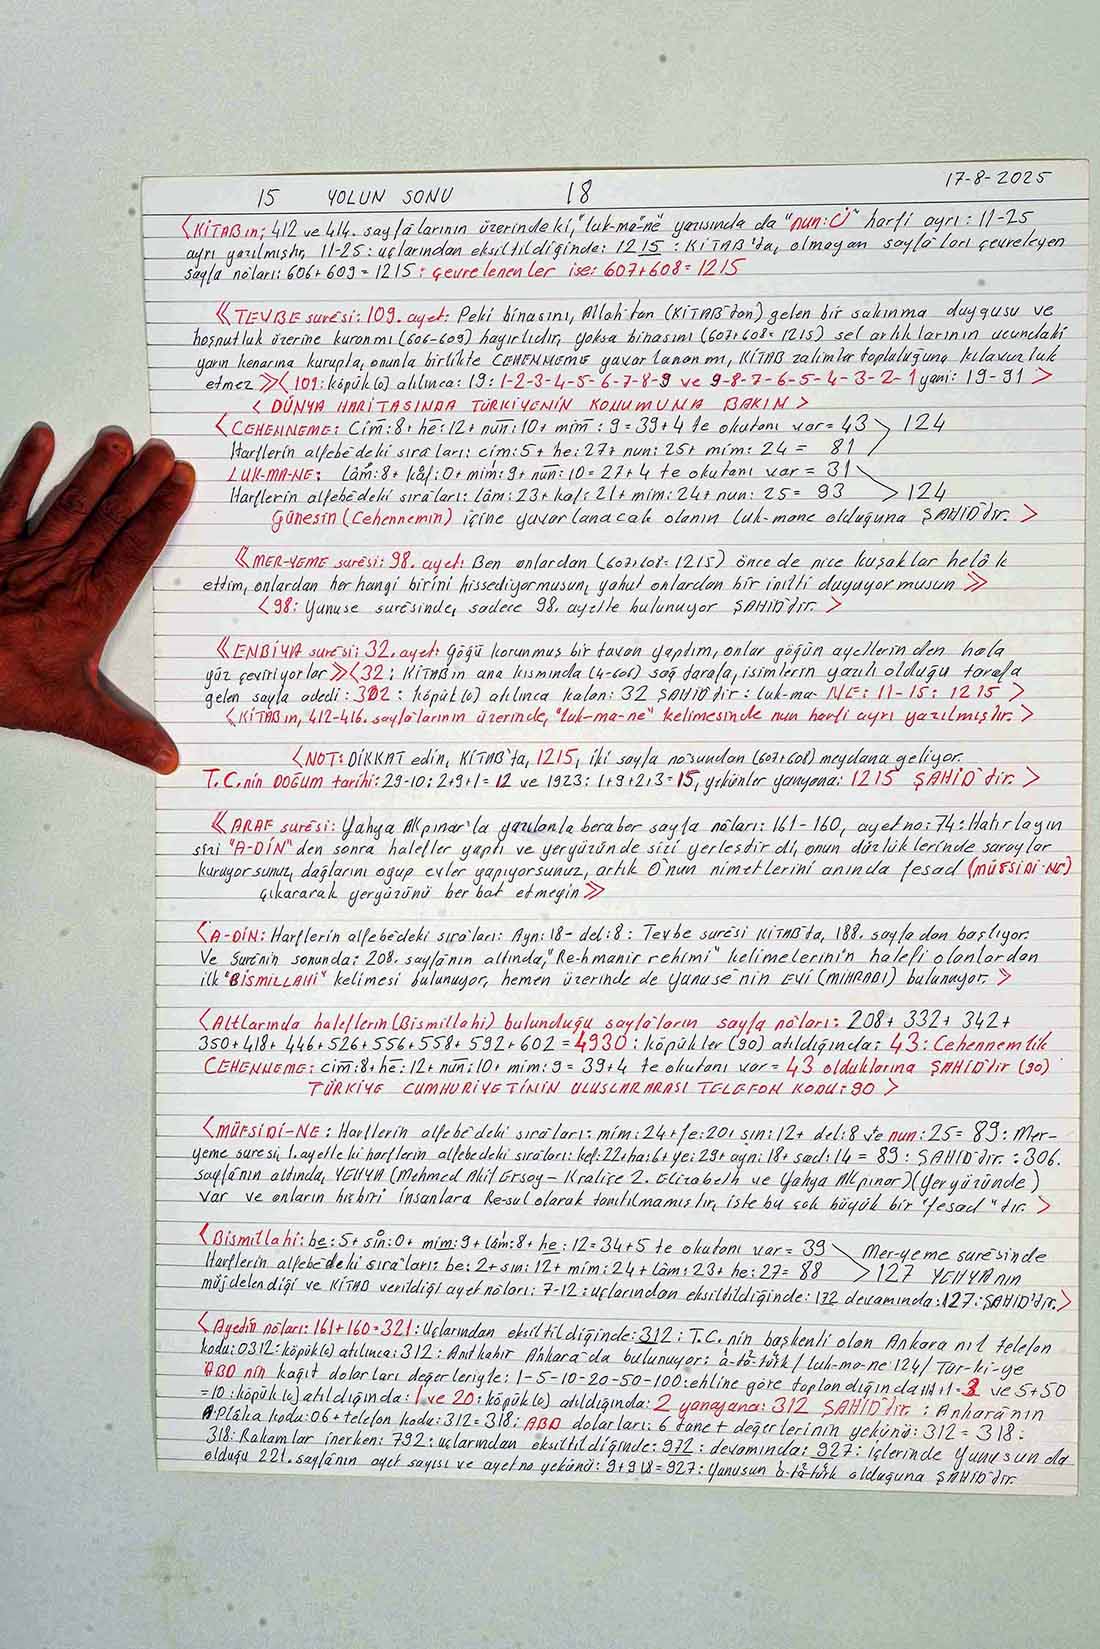 17-8-2025
15 YOLUN SONU 18
<KİTABın; 412 ve 414. sayfalarının üzerindeki, "luk-ma-ne" yazısında da "nun: " harfi ayrı: 11-25
ayrı yazılmıştır, 11-25: uçlarından eksiltildiğinde: 1215: KİTAB'ta, olmayan sayfaları çevreleyen
sayfa noları: 606+609=1215: çevrelenenler ise: 607+608=1215
《TEVBE suresi: 109. ayet: Peki binasını, Allah'tan (KİTAB'tan) gelen bir sakınma duygusu ve
hoşnutluk üzerine kuranmı (606-609) hayırlıdır, yoksa binasını (607+608=1215) sel artıklarının ucundaki
yarın kenarına kurupta, onunla birlikte CEHENNEME yuvarlananmı, KİTAB zalimler topluluğuna kılavuzluk
etmez》<109: köpük(0) atılınca: 19: 1-2-3-4-5-6-7-8-9 ve 9-8-7-6-5-4-3-2-1 yani: 19-91>
<DÜNYA HARİTASINDA TÜRKİYENİN KONUMUNA BAKIN>
<CEHENNEME: Cim: 8+he: 12+nun: 10+mim: 9=39+4 te okutanı var=43 > 124
Harflerin alfebedeki sıraları: cim: 5+he: 27+nun: 25+mim: 24= 81
LUK-MA-NE: Lâm: 8+kaf: 0+mim: 9+nun: 10=27+4 te okutanı var=31
Harflerin alfebedeki sıraları: Lâm: 23+kaf: 21+mim: 24+nun: 25= 93 > 124
Güneşin (Cehennemin) içine yuvarlanacak olanın luk-mane olduğuna ŞAHİD'dir.>
《MER-YEME suresi: 98. ayet: Ben onlardan (607+608=1215) önce de nice kuşaklar helâk
ettim, onlardan her hangi birini hissediyormusun, yahut onlardan bir inilti duyuyormusun》
<98: Yunuse suresinde, sadece 98. ayette bulunuyor ŞAHİD'dir.>
《ENBİYA suresi: 32. ayet: Göğü korunmuş bir tavan yaptım, onlar göğün ayetlerinden hala
yüz çeviriyorlar》<32: KİTABın ana kısmında (4-606) sağ tarafa, isimlerin yazılı olduğu tarafa
gelen sayfa adedi: 302: köpük(0) atılınca kalan: 32 ŞAHİD'dir: luk-ma-NE: 11-15: 1215>
<KİTABın, 412-416. sayfalarının üzerinde, "luk-ma-ne" kelimesinde nun harfi ayrı yazılmıştır.>
<NOT: DİKKAT edin, KİTAB'ta, 1215, iki sayfa nosundan (607+608) meydana geliyor.
T.C.nin DOĞUM tarihi: 29-10: 2+9+1=12 ve 1923: 1+9+2+3=15, yekünler yanyana: 1215 ŞAHİD'dir.>
《ARAF suresi: Yahya Akpınar'la yazılanla beraber sayfa noları: 161-160, ayet no: 74: Hatırlayın
sizi "A-DİN" den sonra halefler yaptı ve yeryüzünde sizi yerleştirdi, onun düzlüklerinde saraylar
kuruyorsunuz, dağlarını oyup evler yapıyorsunuz, artık O'nun nimetlerini anında fesad (MÜFSİDİ-NE)
çıkararak yeryüzünü berbat etmeyin》
<A-DİN: Harflerin alfebedeki sıraları: Ayn: 18-del: 8: Tevbe suresi KİTAB'ta, 188. sayfadan başlıyor.
Ve Surenin sonunda: 208. sayfanın altında, "Re-hmanir rehimi" kelimelerinin halefi olanlardan
ilk "BİSMİLLAHİ" kelimesi bulunuyor, hemen üzerinde de Yunuse'nin EVİ (MİHRABI) bulunuyor.》
<Altlarında haleflerin (Bismillahi) bulunduğu sayfaların sayfa noları: 208+332+342+
350+418+446+526+556+558+592+602=4930: köpükler (90) atıldığında: 43: Cehennemlik
CEHENNEME: cim: 8+he: 12+nun: 10+mim: 9=39+4 te okutanı var=43 olduklarına ŞAHİD'dir (90)
TÜRKİYE CUMHURİYETİNİN ULUSLARARASI TELEFON KODU: 90>
<MÜFSİDİ-NE: Harflerin alfebedeki sıraları: mim: 24+fe: 20+sın: 12+del: 8 ve nun: 25=89: Mer-
yeme suresi, 1. ayetteki harflerin alfebedeki sıraları: kef: 22+ha: 6+ye: 29+ayn: 18+sad: 14=89: ŞAHİD'dir.: 306.
sayfanın altında, YEHYA (Mehmed Akif Ersoy-Kraliçe 2. Elizabeth ve Yahya Akpınar) (yeryüzünde)
var ve onların hiçbiri insanlara Re-sul olarak tanıtılmamıştır, işte bu çok büyük bir "fesad"tır.>
<Bismillahi: be: 5+sin: 0+mim: 9+lâm: 8+he: 12=34+5 te okutanı var=39 Mer-yeme suresinde
Harflerin alfebedeki sıraları: be: 2+sın: 12+mim: 24+Lâm: 23+he: 27= 88 >127 YEHYA'nın
müjdelendiği ve KİTAB verildiği ayet noları: 7-12: uçlarından eksiltildiğinde: 172 devamında: 127: ŞAHİD'dir.>
<Ayedin noları: 161+160=321: Uçlarından eksiltildiğinde: 312: T.C.nin başkenti olan Ankaranın telefon
kodu: 0312: köpük(0) atılınca: 312: Anıtkabir Ankara'da bulunuyor: a-ta-türk/luk-ma-ne 124/Tür-ki-ye
ABD nin kağıt dolarları değerleriyle: 1-5-10-20-50-100: ehline göre toplandığında 1+1+1=3 ve 5+50
=10: köpük(0) atıldığında: 1 ve 20: köpük(0) atıldığında: 2 yanayana: 312 ŞAHİD'dir.: Ankara'nın
Plâka kodu: 06+telefon kodu: 312=318: ABD dolarları: 6 tane+değerlerinin yekünü: 312=318:
318: Rakamlar inerken: 792: uçlarından eksiltildiğinde: 972: devamında: 927: içlerinde Yunusunda
olduğu 221. sayfanın ayet sayısı ve ayet no yekünü: 9+918=927: Yunusun a-ta-türk olduğuna ŞAHİD'dir.